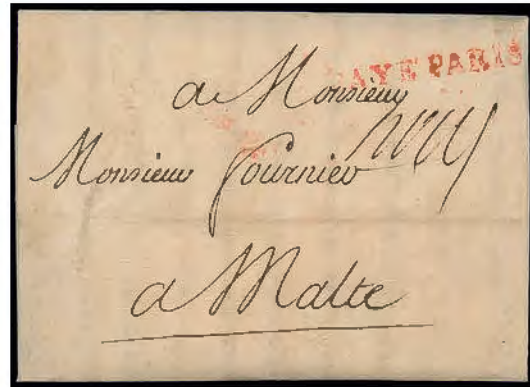 AYE PARIS
a Monsieur
Monsieur Fournier
a Malte